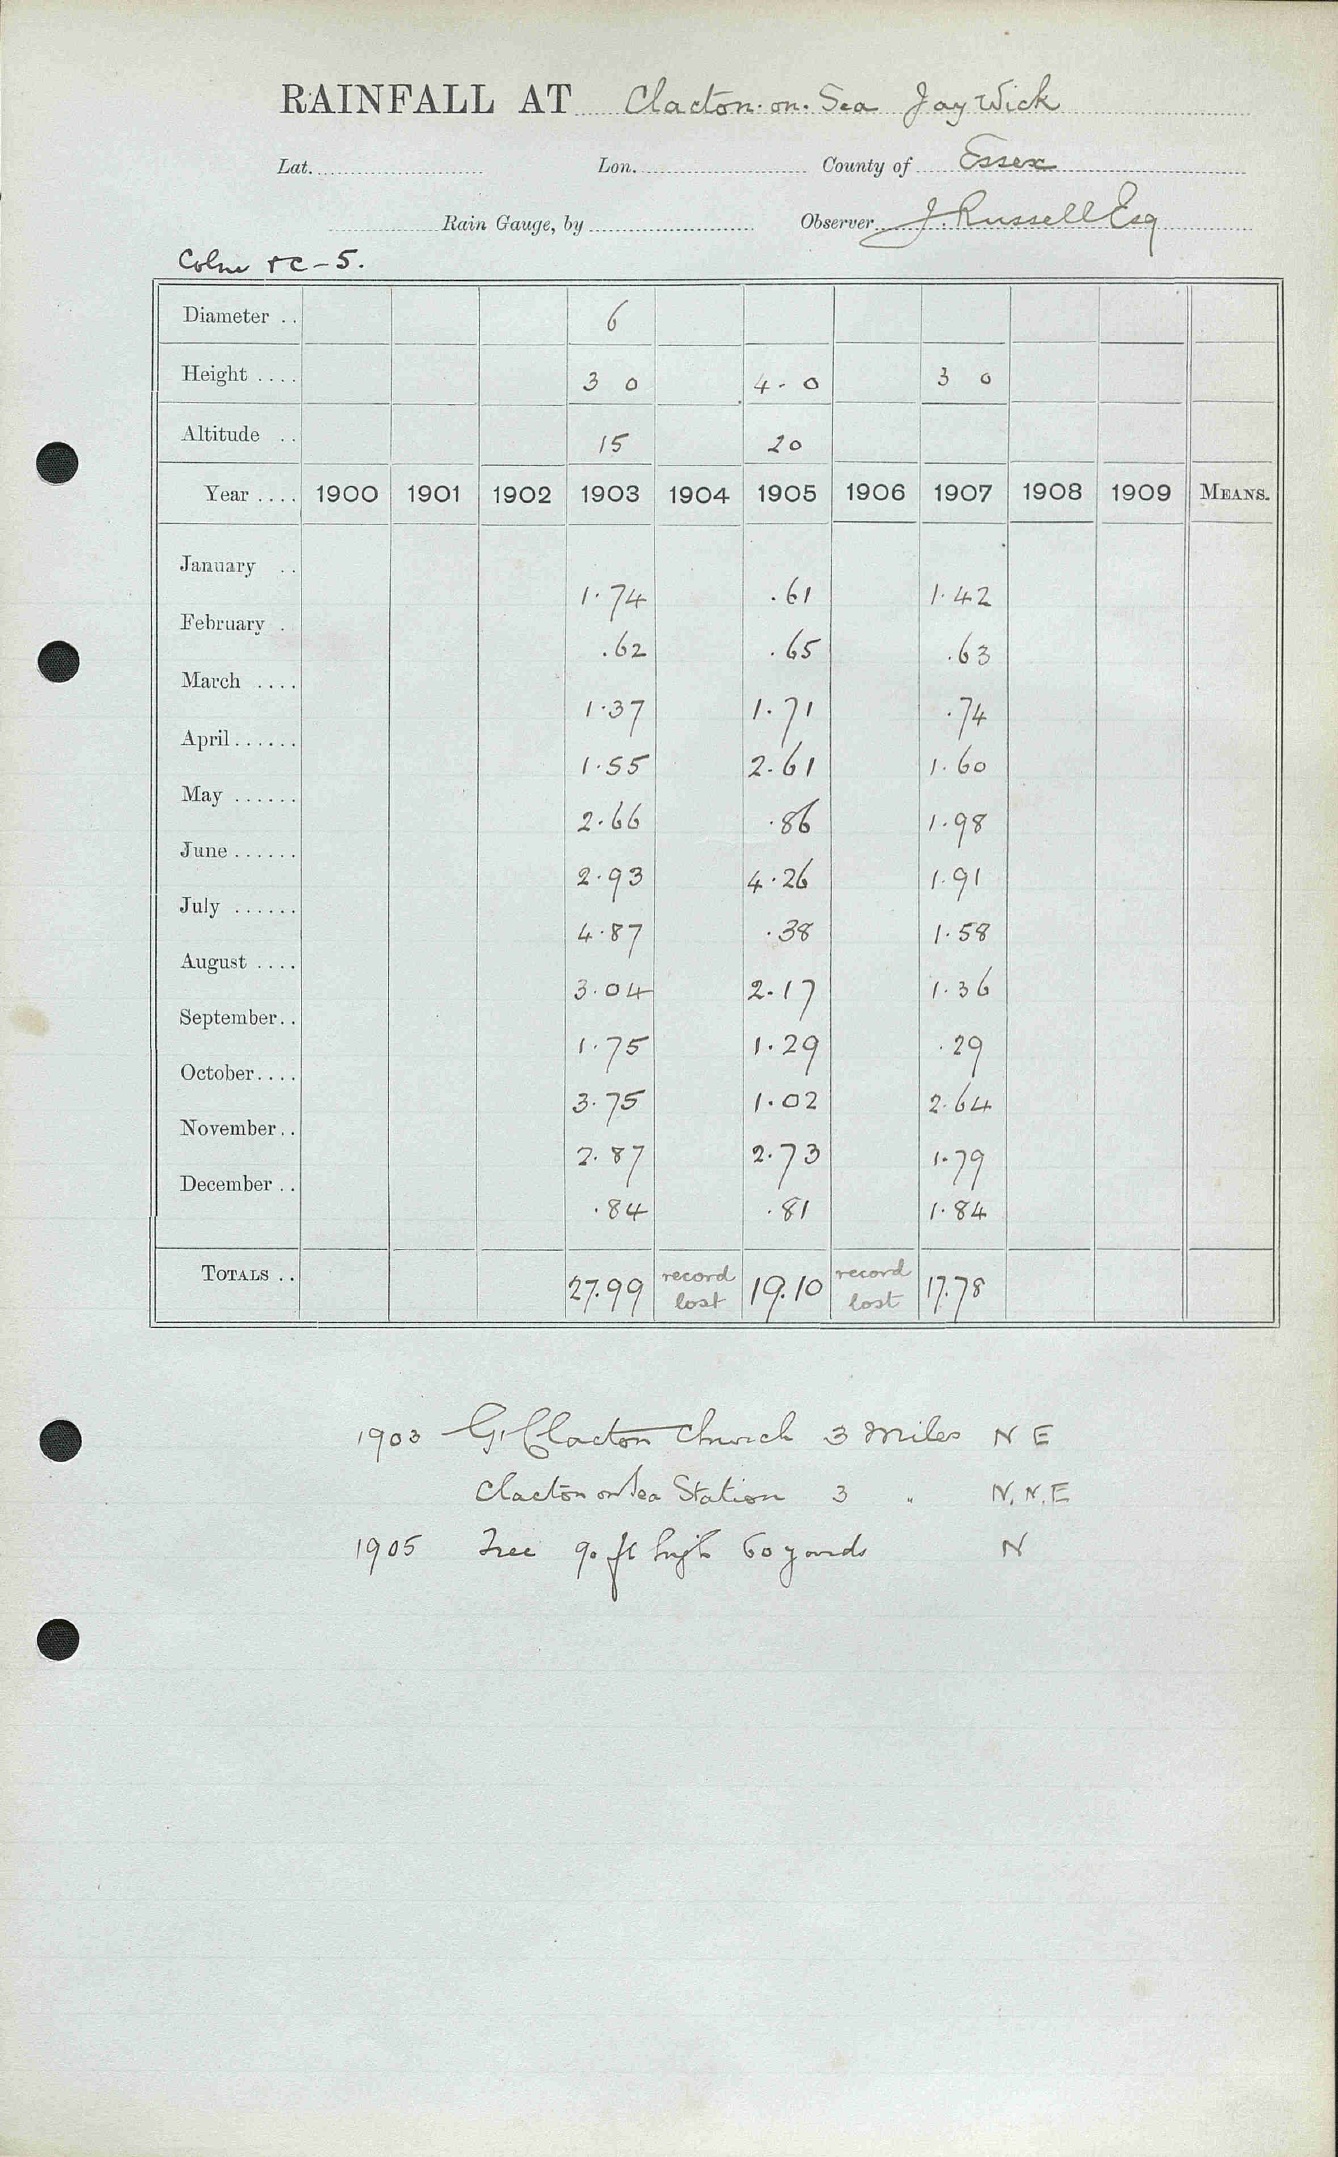 RAINFALL AT Clacton-on-Sea Jay Wick
Lat. Lon. County of Essex
Rain Gauge, by Observer J. Russell Esq
Colne &c - 5.
Diameter .. 6
Height .... 3 0 4 - 0 3 0
Altitude .. 15 20
Year .... 1900 1901 1902 1903 1904 1905 1906 1907 1908 1909 MEANS.
January .. 1.74 .61 1.42
February . .62 .65 .63
March .... 1.37 1.71 .74
April ...... 1.55 2.61 1.60
May ...... 2.66 .86 1.98
June ...... 2.93 4.26 1.91
July ...... 4.87 .38 1.58
August .... 3.04 2.17 1.36
September.. 1.75 1.29 .29
October.... 3.75 1.02 2.64
November.. 2.87 2.73 1.79
December .. .84 .81 1.84
TOTALS .. 27.99 record lost 19.10 record lost 17.78
1903 Gt Clacton Church 3 Miles N E
Clacton on Sea Station 3 " N.N.E
1905 Tree 90 ft high 60 yards N